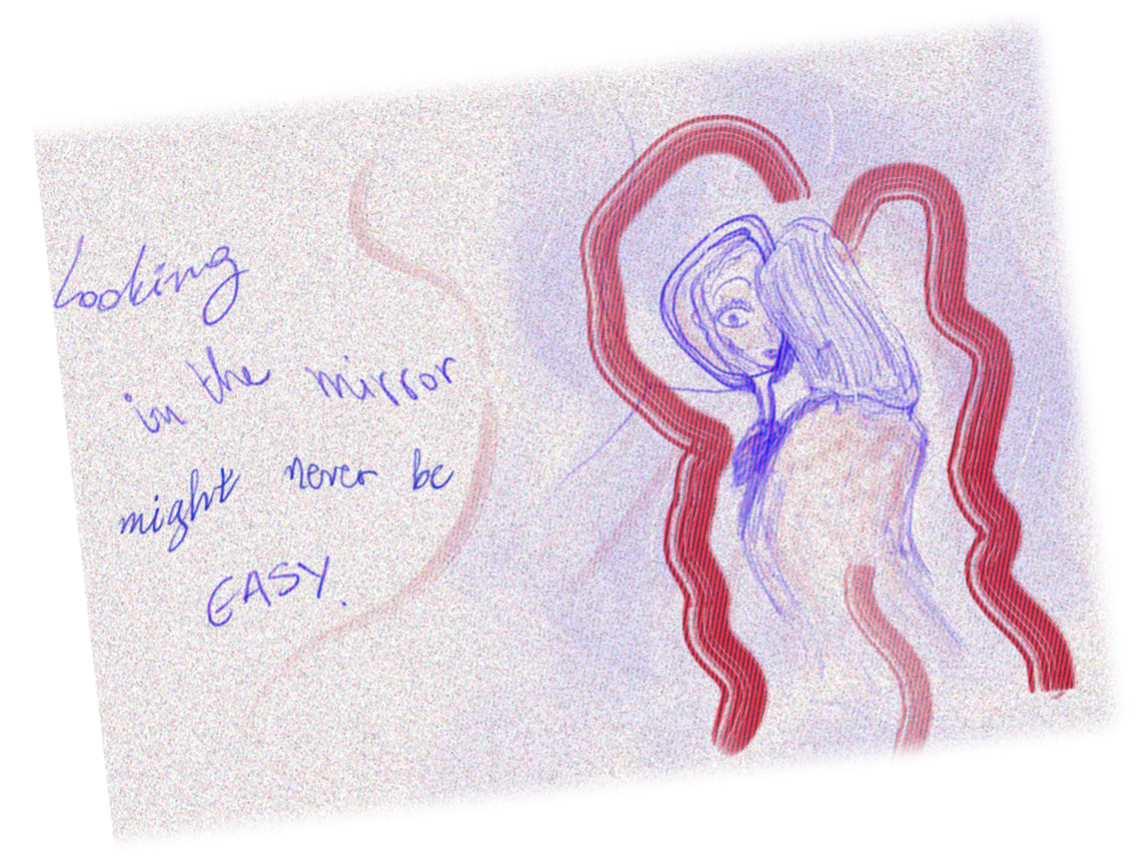 Looking
in the mirror
might never be
EASY.